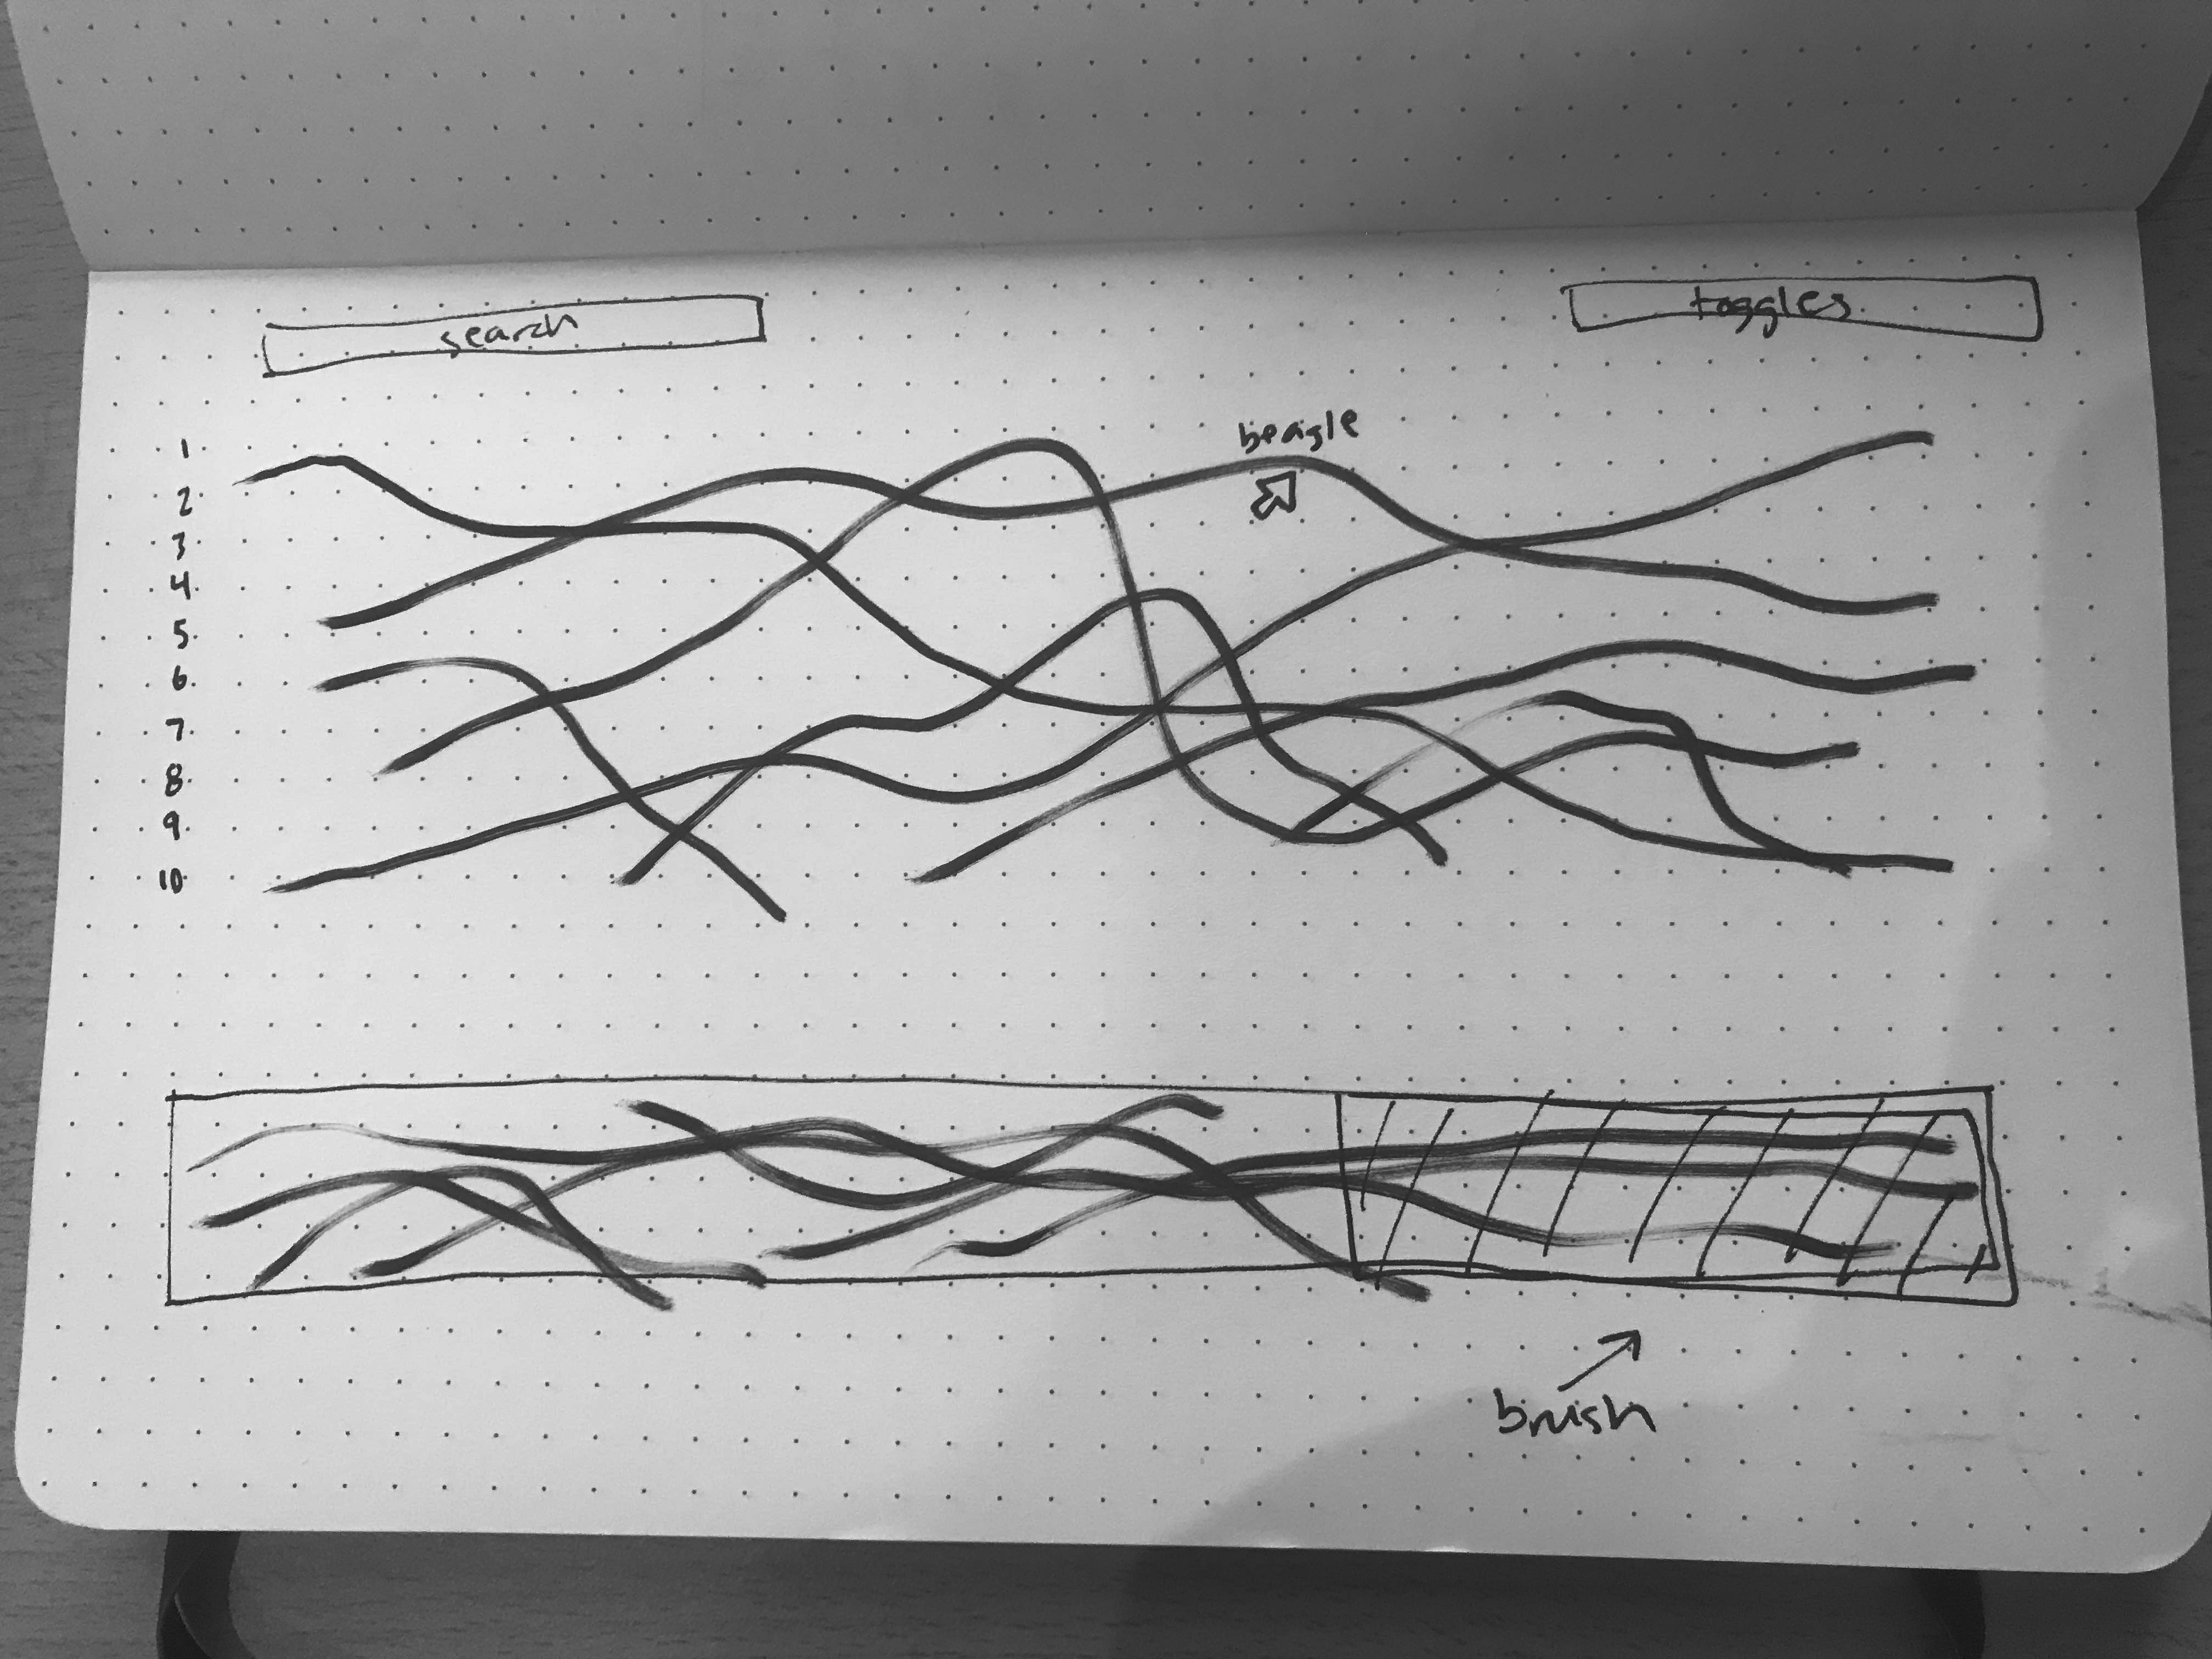 search
toggles
beagle
1
2
3
4
5
6
7
8
9
10
brush